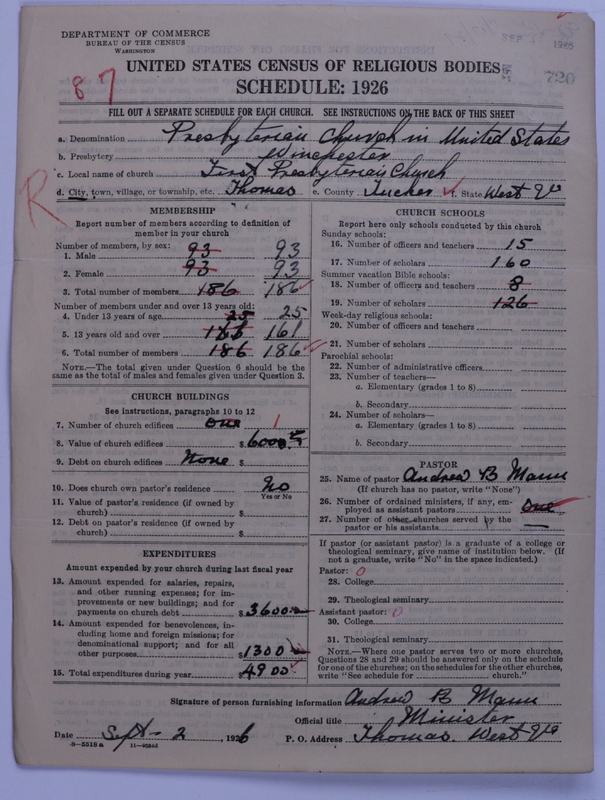 DEPARTMENT OF COMMERCE
BUREAU OF THE CENSUS
WASHINGTON
SEP
720
87
UNITED STATES CENSUS OF RELIGIOUS BODIES
SCHEDULE: 1926
FILL OUT A SEPARATE SCHEDULE FOR EACH CHURCH. SEE INSTRUCTIONS ON THE BACK OF THIS SHEET
a. Denomination Presbyterian Church in United States
b. Presbytery Winchester
c. Local name of church First Presbyterian Church
R
d. City, town, village, or township, etc. Thomas e. County Tucker f. State West Va
MEMBERSHIP
Report number of members according to definition of
member in your church
Number of members, by sex:
1. Male 93 93
2. Female 93 93
3. Total number of members 186 186
Number of members under and over 13 years old:
4. Under 13 years of age 25 25
5. 13 years old and over 161
6. Total number of members 186 186
NOTE.—The total given under Question 6 should be
same as the total of males and females given under Question 3.
CHURCH BUILDINGS
See instructions, paragraphs 10 to 12
7. Number of church edifices one 1
8. Value of church edifices $6000
9. Debt on church edifices None $
10. Does church own pastor's residence No
Yes or No
11. Value of pastor's residence (if owned by
church) $
12. Debt on pastor's residence (if owned by
church) $
EXPENDITURES
Amount expended by your church during last fiscal year
13. Amount expended for salaries, repairs,
and other running expenses; for im-
provements or new buildings; and for
payments on church debt $3600
14. Amount expended for benevolences, in-
cluding home and foreign missions; for
denominational support; and for all
other purposes $1300
15. Total expenditures during year $4900
CHURCH SCHOOLS
Report here only schools conducted by this church
Sunday schools:
16. Number of officers and teachers 15
17. Number of scholars 160
Summer vacation Bible schools:
18. Number of officers and teachers 8
19. Number of scholars 126
Week-day religious schools:
20. Number of officers and teachers
21. Number of scholars
Parochial schools:
22. Number of administrative officers
23. Number of teachers—
a. Elementary (grades 1 to 8)
b. Secondary
24. Number of scholars—
a. Elementary (grades 1 to 8)
b. Secondary
PASTOR
25. Name of pastor Andrew B Mann
(If church has no pastor, write "None")
26. Number of ordained ministers, if any, em-
ployed as assistant pastors one
27. Number of other churches served by the
pastor or his assistants —
If pastor (or assistant pastor) is a graduate of a college or
theological seminary, give name of institution below. (If
not a graduate, write "No" in the space indicated.)
Pastor: 0
28. College
29. Theological seminary
Assistant pastor: 0
30. College
31. Theological seminary
NOTE.—Where one pastor serves two or more churches,
Questions 28 and 29 should be answered only on the schedule
for one of the churches; on the schedules for the other churches,
write "See schedule for church."
Signature of person furnishing information Andrew B Mann
Official title Minister
Date Sept- 2, 1926 P. O. Address Thomas. West Va